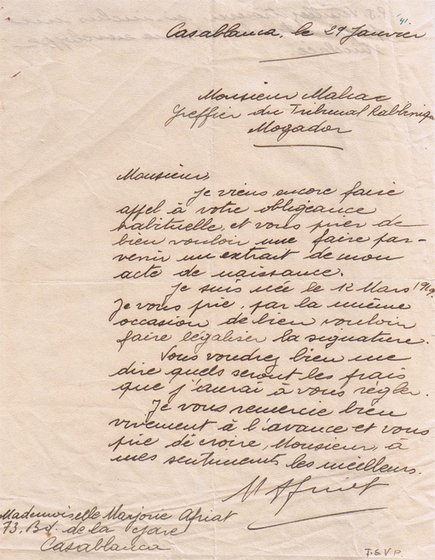 Casablanca, le 29 Janvier 41.
Monsieur
Greffier du Tribunal Rabbinique
Mogador
Monsieur,
Je viens encore faire
appel à votre obligeance
habituelle, et vous prier de
bien vouloir me faire par-
venir un extrait de mon
acte de naissance.
Je suis née le 12 Mars
Je vous prie, par la même
occasion de bien vouloir
faire légaliser la signature.
Vous voudrez bien me
dire quels seront les frais
que j'aurai à vous régler.
Je vous remercie bien
vivement à l'avance et vous
prie de croire, Monsieur, à
mes sentiments les meilleurs.
M Afriat
Mademoiselle Marjorie Afriat
73. Bd. de la Gare
Casablanca
T.S.V.P.